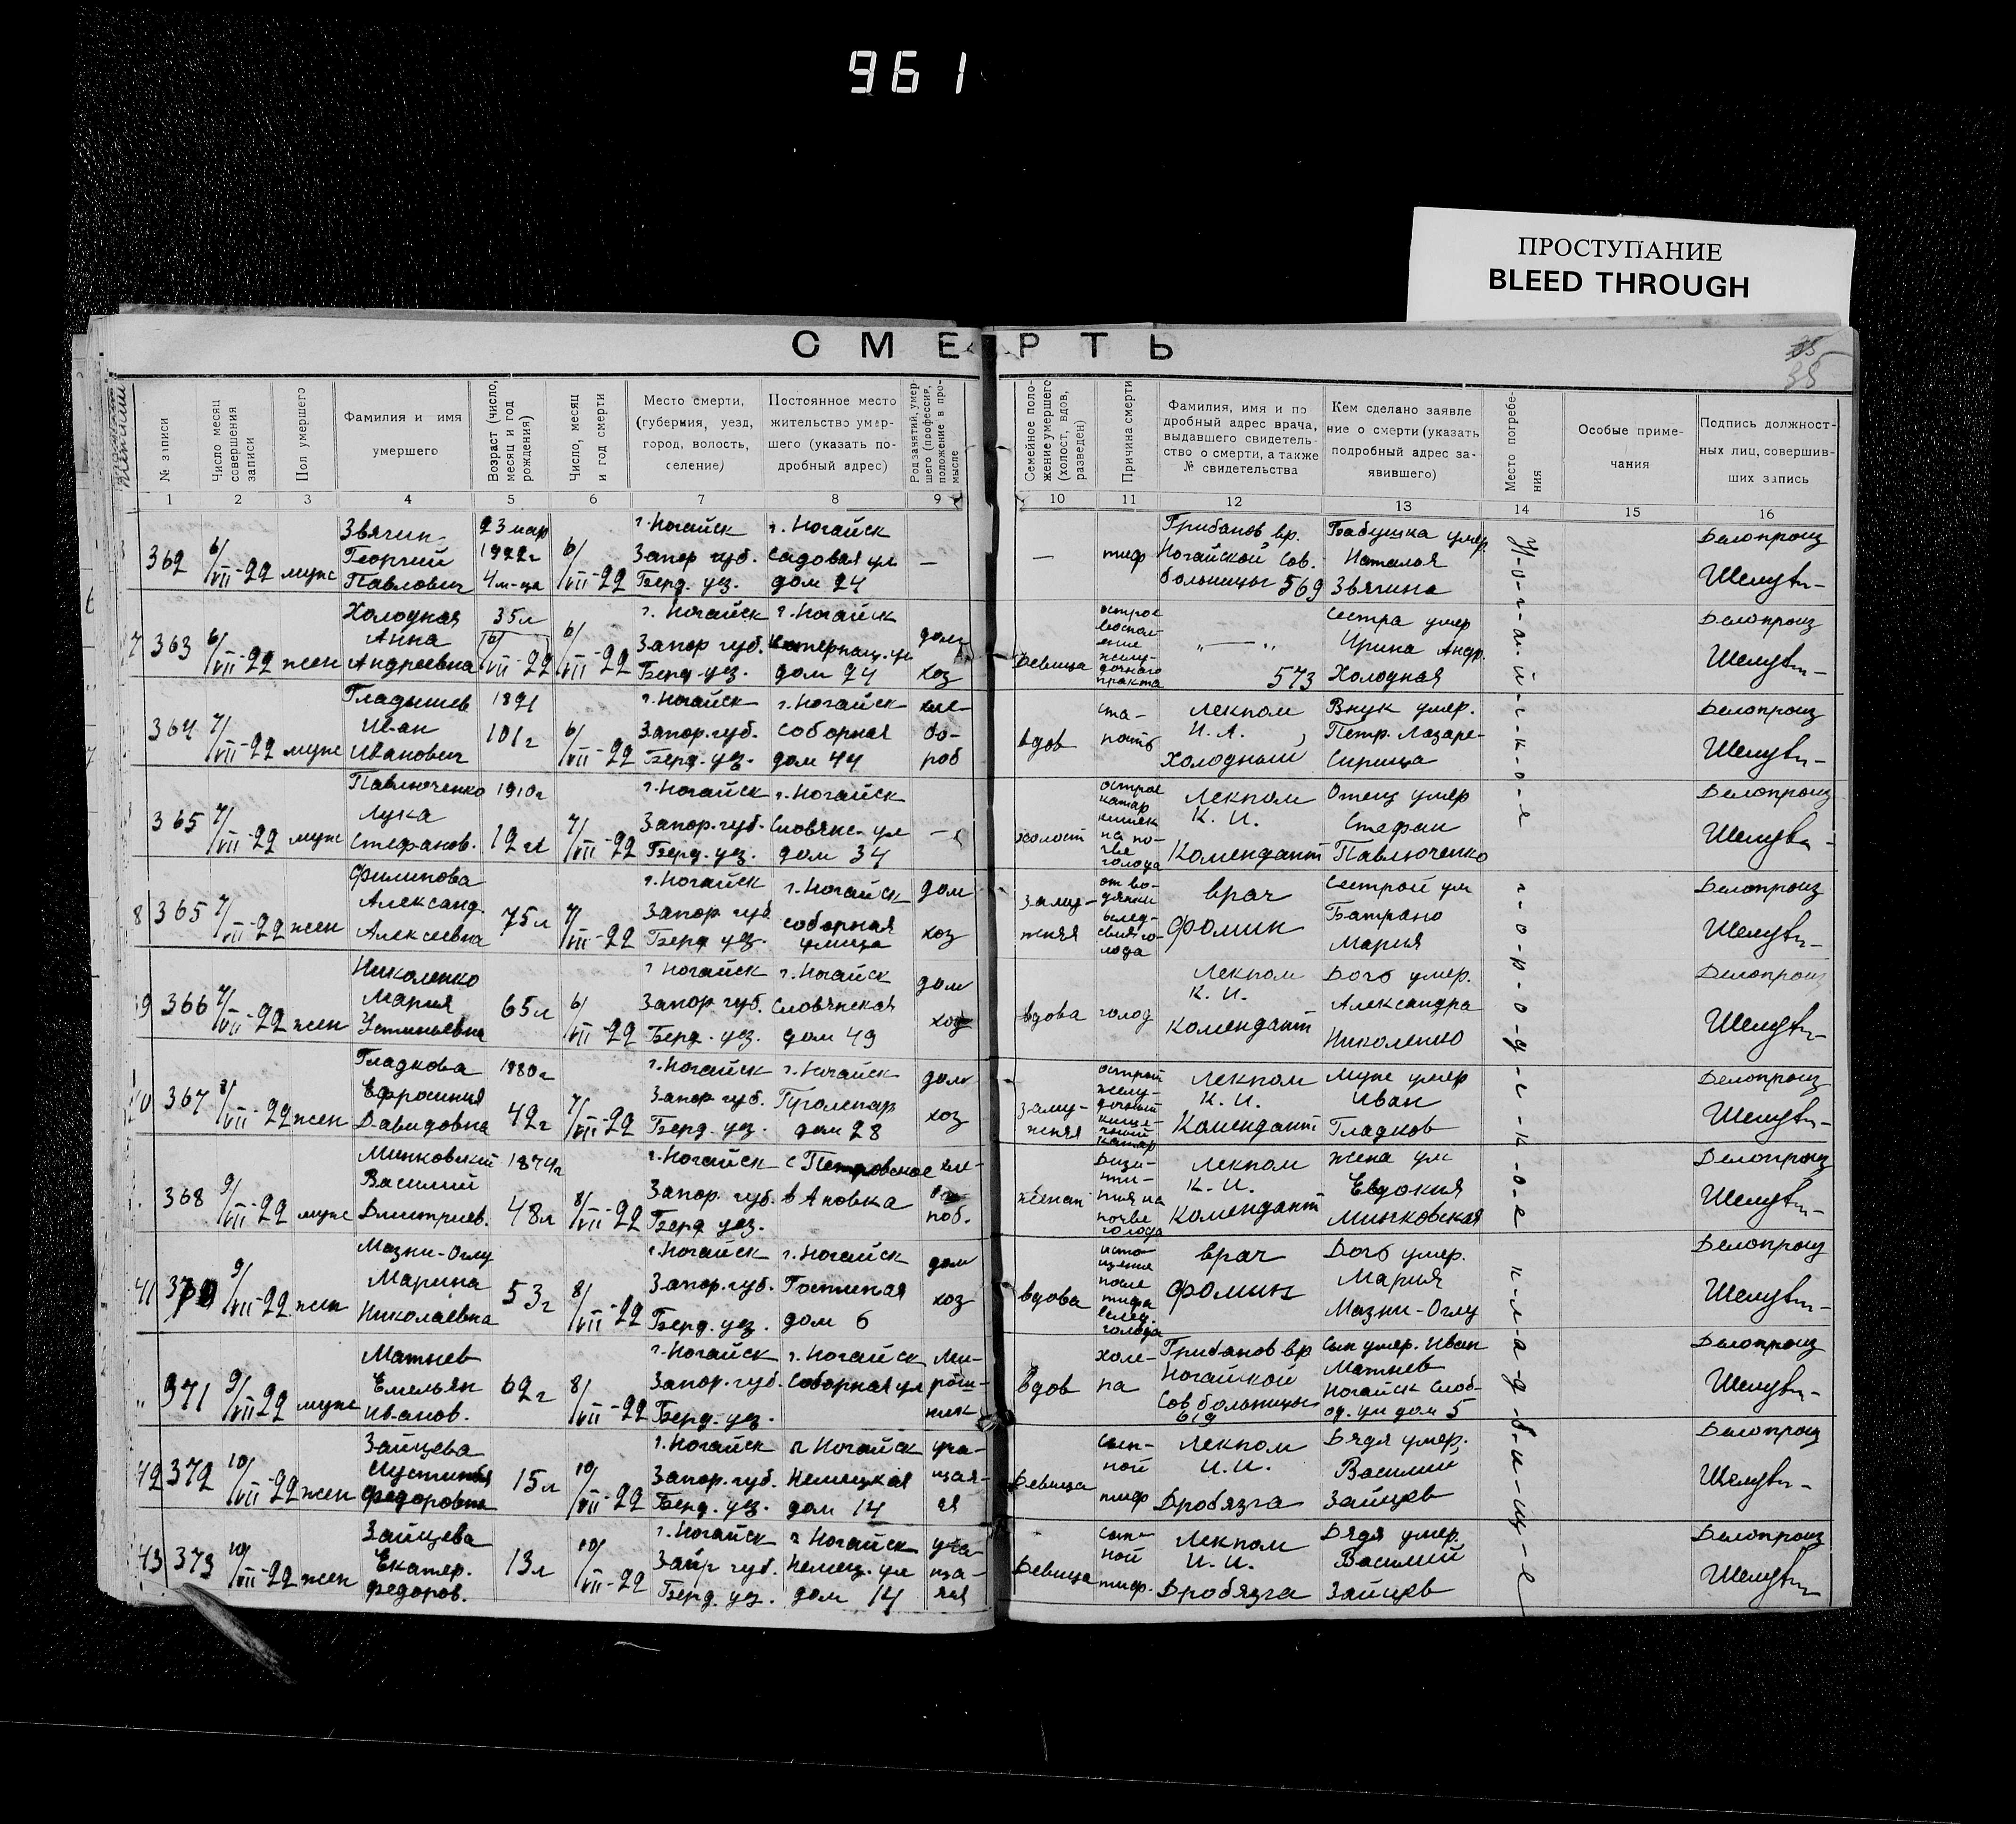 961
ПРОСТУПАНИЕ
BLEED THROUGH
СМЕРТЬ
35
№ записи
Число месяц совершения записи
Пол умершего
Фамилия и имя умершего
Возраст (число, месяц и год рождения)
Число, месяц и год смерти
Место смерти, (губерния, уезд, город, волость, селение)
Постоянное место жительство умершего (указать подробный адрес)
Род занятий, умершего (профессия, положение в промысле
Семейное положение умершего (холост, вдов, разведен)
Причина смерти
Фамилия, имя и подробный адрес врача, выдавшего свидетельство о смерти, а также № свидетельства
Кем сделано заявление о смерти (указать подробный адрес заявившего)
Место погребения
Особые примечания
Подпись должностных лиц, совершивших запись
1 2 3 4 5 6 7 8 9 10 11 12 13 14 15 16
362 6/VII-22 муж Звягин Георгий Павлович 23 мар 1922г 4 м-ца 6/VII-22 г. Ногайск Запор губ. Берд. уез. г. Ногайск Садовая ул дом 24 — — тиф Грибанов вр. Ногайской Сов. больницы 569 Бабушка умер. Наталья Звягина Делопроиз
363 6/VII-22 жен Холодная Анна Андреевна 35л 6/VII-22 6/VII-22 г. Ногайск Запор губ. Берд. уез. г. Ногайск дом 24 дом хоз девица острое воспаление желудочного тракта „—„ 573 Сестра умер Ирина Андр. Холодная Делопроиз
364 7/VII-22 муж Гладышев Иван Иванович 1821 101г 6/VII-22 г. Ногайск Запор. губ. Берд. уез. г. Ногайск Соборная дом 44 хлебороб вдов старость Лекпом И. А. Холодный Внук умер. Петр. Лазаре- Сирица Делопроиз
365 7/VII-22 муж Павлюченко Лука Стефанов. 1910г 12 л 7/VII-22 г. Ногайск Запор. губ. Берд. уез. г. Ногайск Словянс. ул дом 34 — холост острое катар кишек на почве голода Лекпом К. И. Комендант Отец умер Стефан Павлюченко Делопроиз
8 365 7/VII-22 жен Филипова Александ. Алексеевна 75л 7/VII-22 г. Ногайск Запор губ Берд уез. г. Ногайск соборная улица дом хоз замужняя от водянки голода врач Фомин Сестрой ум Батрано Мария Делопроиз
9 366 7/VII-22 жен Николенко Мария Устиньевна 65л 6/VII-22 г Ногайск Запор губ. Берд. уез. г. Ногайск Словянская дом 49 дом хоз вдова голод Лекпом К. И. Комендант Дочь умер. Александра Николенко Делопроиз
40 367 8/VII-22 жен Гладкова Ефросиния Давидовна 1880г 42г 7/VII-22 г. Ногайск Запор губ. Берд. уез. г. Ногайск Пролетар дом 28 дом хоз замужняя острый желудочный катар Лекпом К. И. Комендант Муж умер Иван Гладков Делопроиз
368 9/VII-22 муж Минковский Василий Дмитриев. 1874г 48л 8/VII-22 г. Ногайск Запор. губ. Берд уез. с Петровское в Ановка женат дизинтирия на почве голода Лекпом К. И. Комендант жена ум Евдокия Минковская Делопроиз
41 370 9/VII-22 жен Мазни-Оглу Марина Николаевна 53г 8/VII-22 г. Ногайск Запор. губ. Берд. уез. г. Ногайск Гостиная дом 6 дом хоз вдова истощения после тифа вслед. голода врач Фомин Дочь умер. Мария Мазни-Оглу Делопроиз
„ 371 9/VII 22 муж Матнев Емельян Иванов. 62г 8/VII-22 г. Ногайск Запор. губ. Берд. уез. г. Ногайск Соборная ул вдов холера Грибанов вр Ногайской Сов больницы 619 Сын умер. Иван Матнев Ногайск Слобод. ул дом 5 Делопроиз
42 372 10/VII-22 жен Зайцева Федоровна 15л 10/VII-22 г. Ногайск Запор. губ. Берд. уез. г Ногайск Немецкая дом 14 учащаяся девица сыпной тиф Лекпом И. И. Дробязга Дядя умер. Василий Зайцев Делопроиз
43 373 10/VII-22 жен Зайцева Екатер. Федоров. 13л 10/VII-22 г. Ногайск Запор губ. Берд. уез. г Ногайск Немец. ул дом 14 учащаяя девица сыпной тиф. Лекпом И. И. Дробязга Дядя умер. Василий Зайцев Делопроиз
Н-о-г-а-й-с-к-о-е г-о-р-о-д-с-к-о-е к-л-а-д-б-и-щ-е